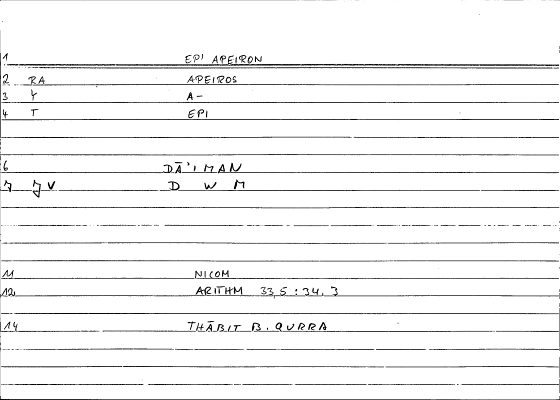 1 EPI APEIRON
2 RA APEIROS
3 Y A-
4 T EPI
6 DĀ'IMAN
7 JV D W M
11 NICOM
12 ARITHM 33,5 : 34.3
14 THĀBIT B. QURRA